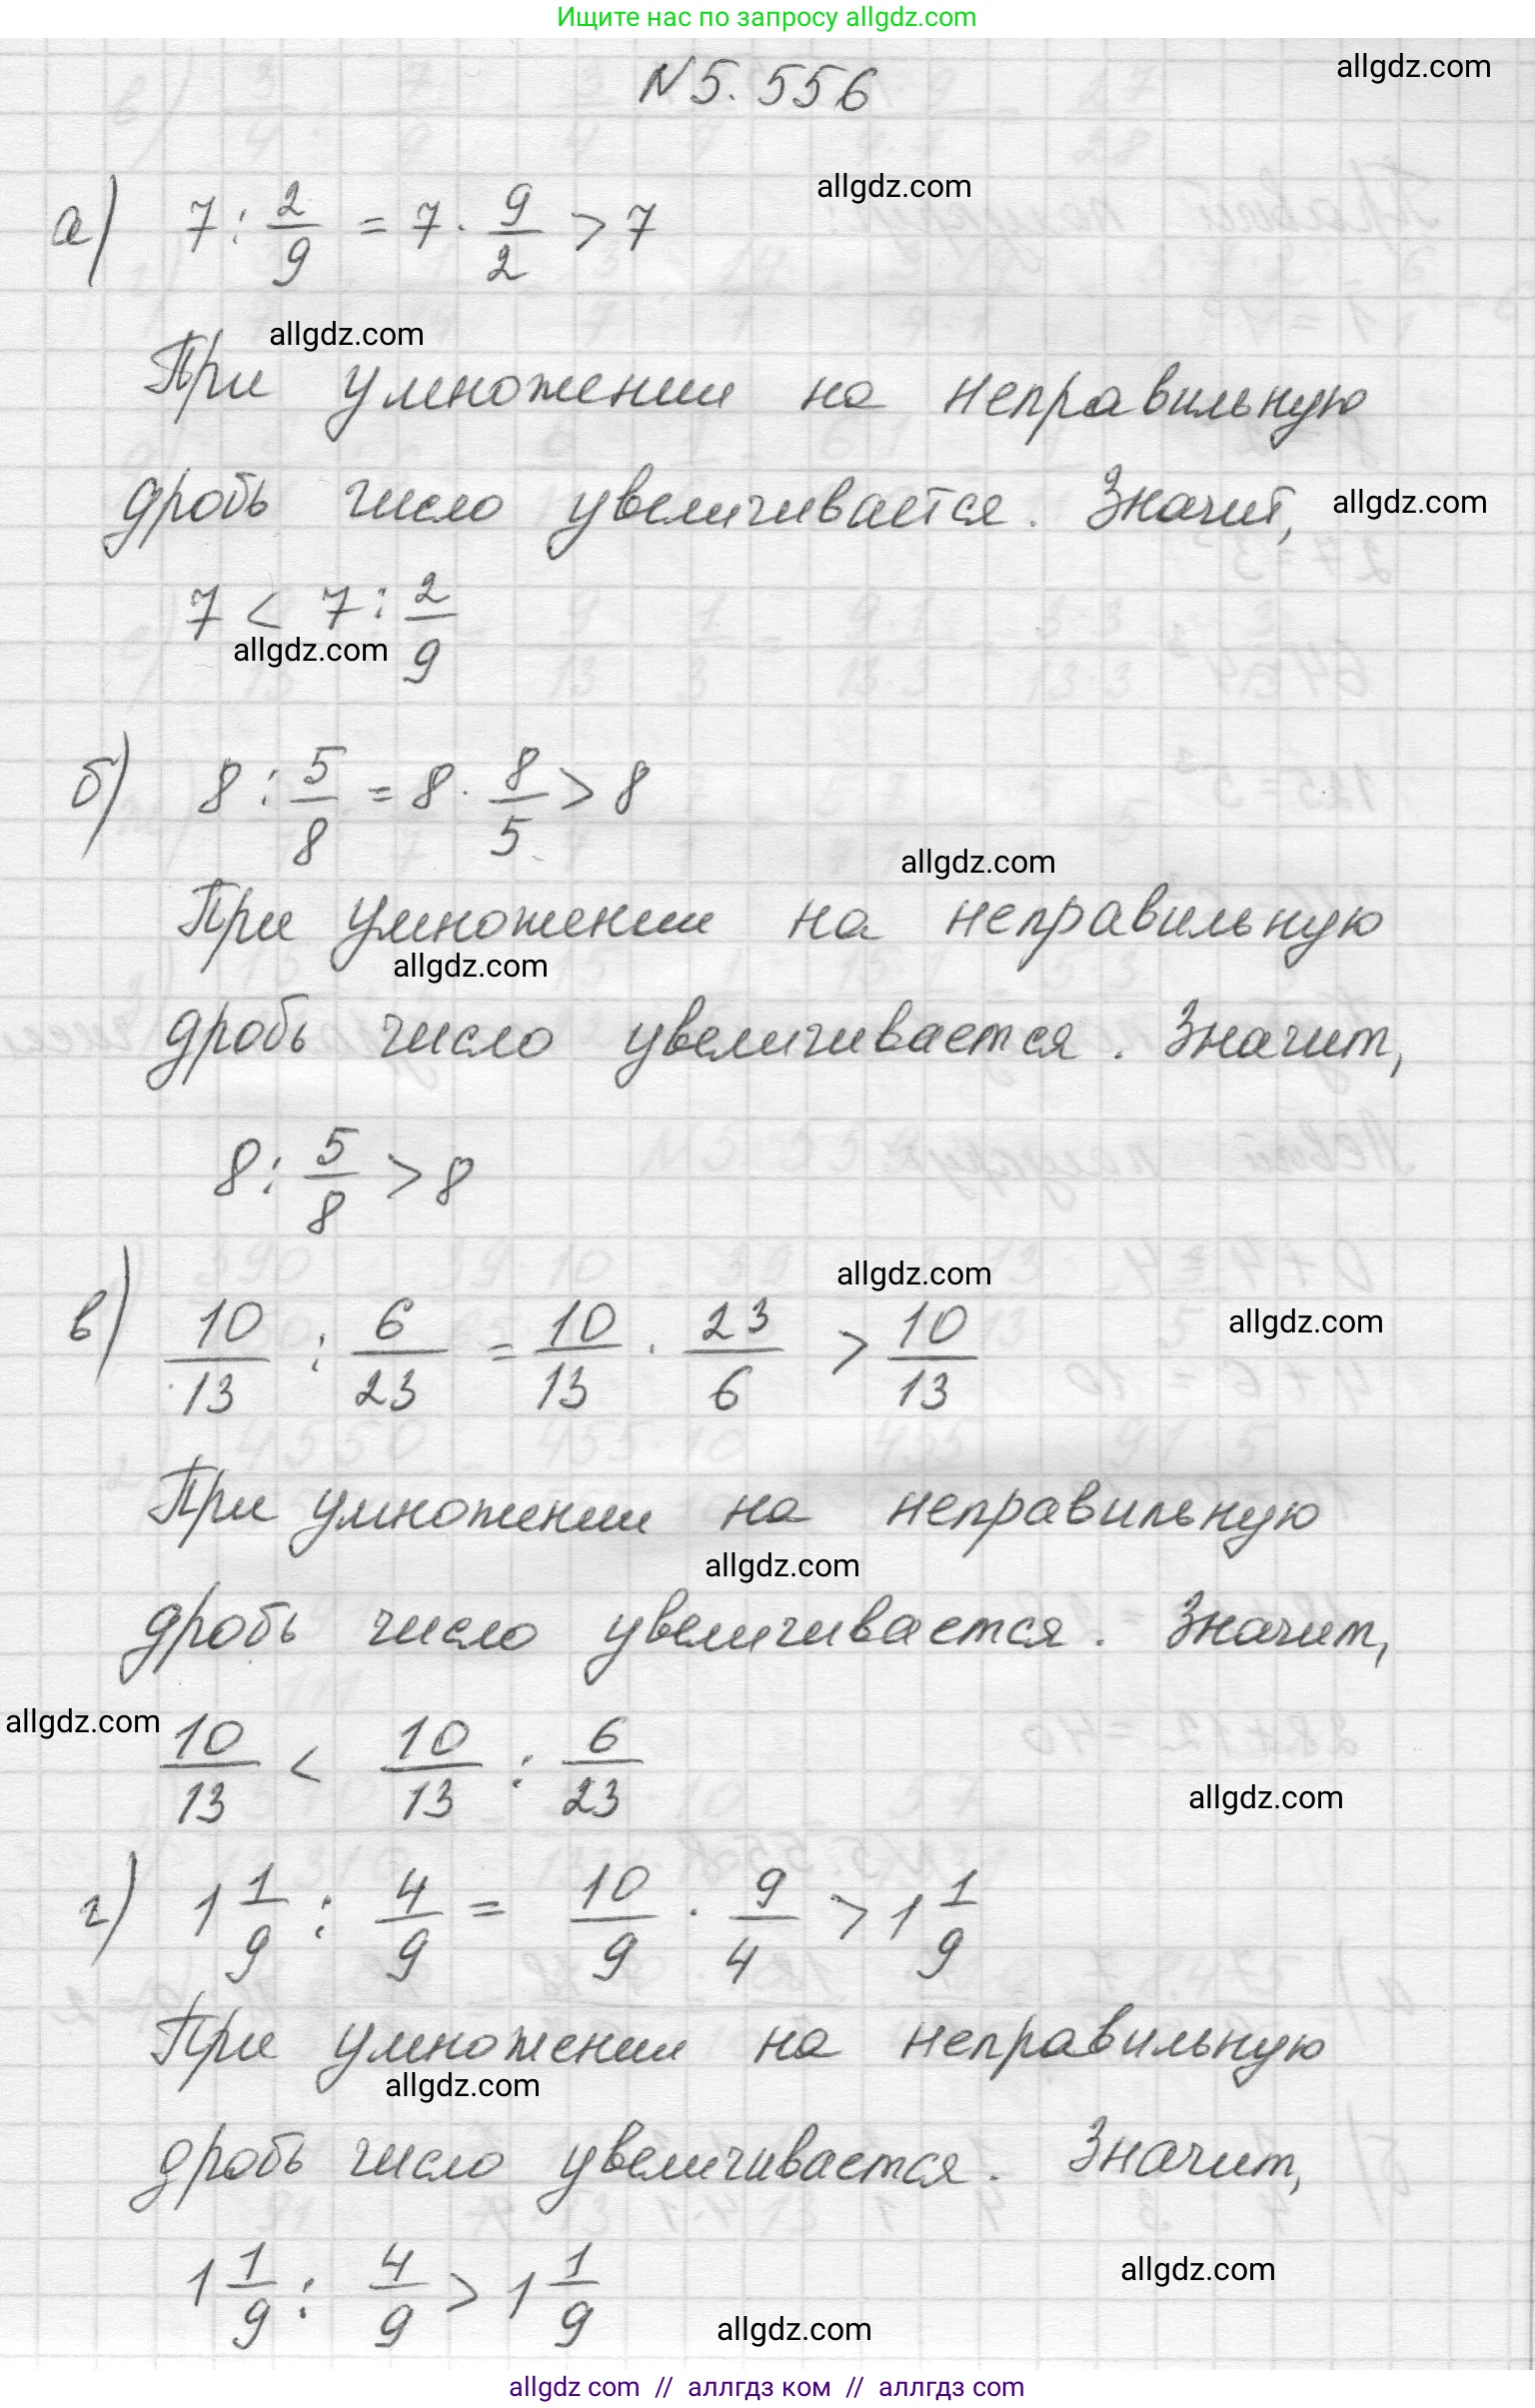 Ищите нас по запросу allgdz.com
allgdz.com
N 5. 556
allgdz.com
а) 7 : 2/9 = 7 · 9/2 > 7
allgdz.com
При умножении на неправильную
дробь число увеличивается. Значит,
allgdz.com
7 < 7 : 2/9
allgdz.com
б) 8 : 5/8 = 8 · 8/5 > 8
allgdz.com
При умножении на неправильную
allgdz.com
дробь число увеличивается. Значит,
8 : 5/8 > 8
allgdz.com
allgdz.com
в) 10/13 : 6/23 = 10/13 · 23/6 > 10/13
При умножении на неправильную
allgdz.com
дробь число увеличивается. Значит,
allgdz.com
10/13 < 10/13 : 6/23
allgdz.com
г) 1 1/9 : 4/9 = 10/9 · 9/4 > 1 1/9
При умножении на неправильную
allgdz.com
дробь число увеличивается. Значит,
1 1/9 : 4/9 > 1 1/9
allgdz.com
allgdz.com
allgdz com // аллгдз ком // аллгдз com